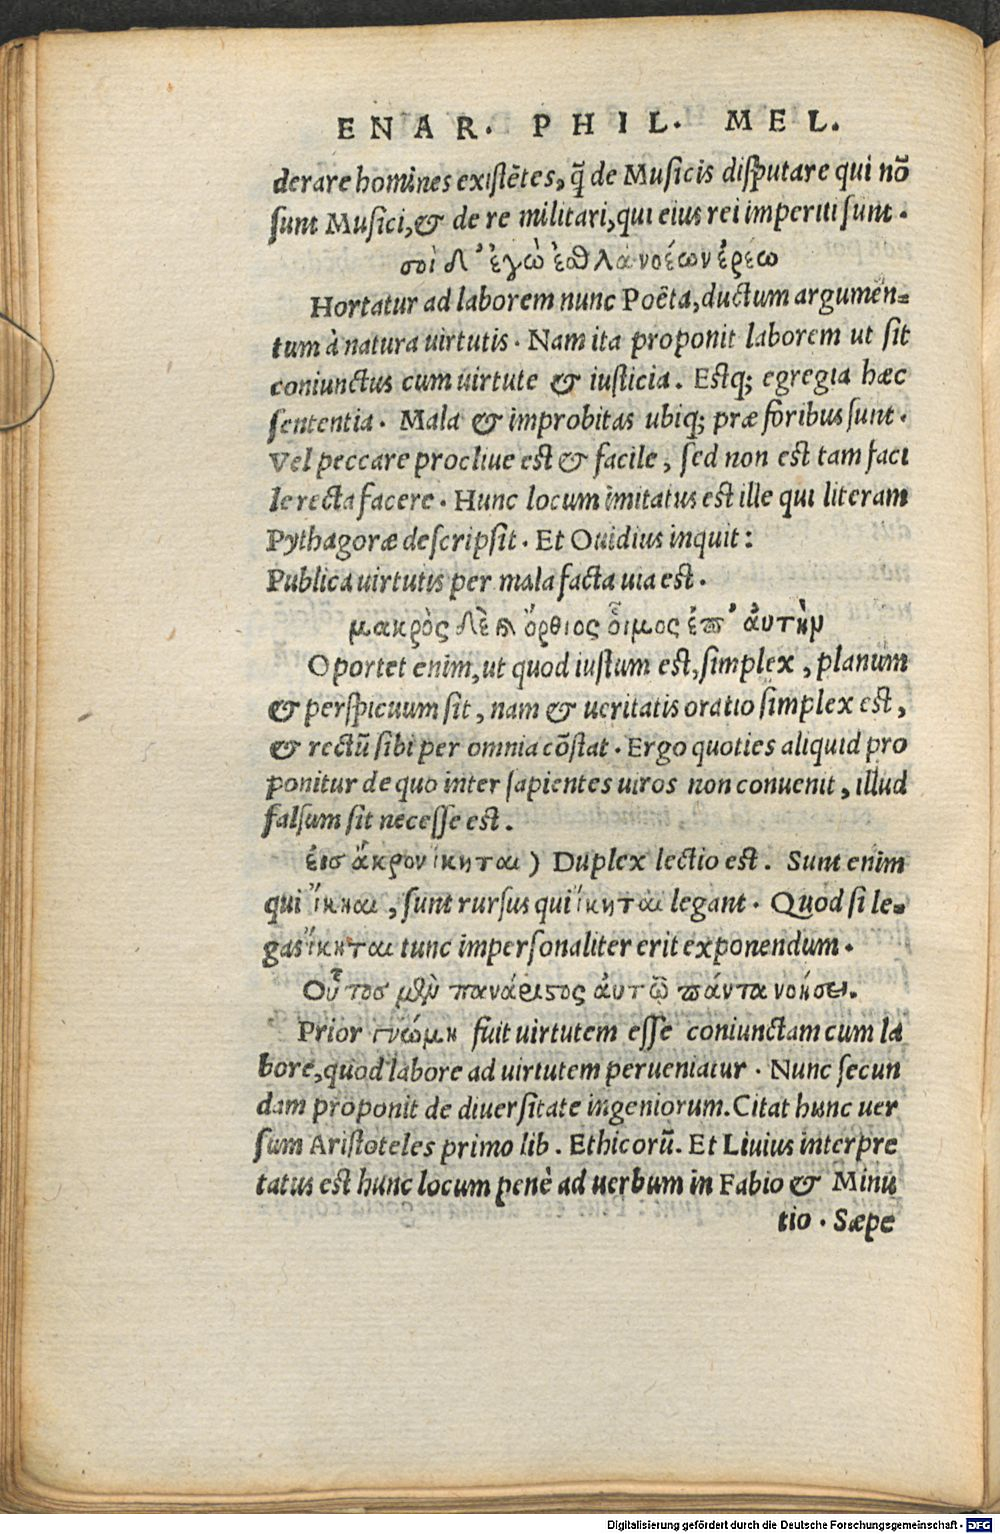 ENAR. PHIL. MEL.
derare homines existẽtes, q̃ de Musicis disputare qui nõ
sunt Musici, & de re militari, qui eius rei imperiti sunt.
σοὶ δ' ἐγὼ ἐσθλὰ νοέων ἐρέω
Hortatur ad laborem nunc Poëta, ductum argumen-
tum à natura uirtutis. Nam ita proponit laborem ut sit
coniunctus cum uirtute & iusticia. Estq; egregia hæc
sententia. Mala & improbitas ubiq; præ foribus sunt.
Vel peccare procliue est & facile, sed non est tam faci
le recta facere. Hunc locum imitatus est ille qui literam
Pythagoræ descripsit. Et Ouidius inquit:
Publica uirtutis per mala facta uia est.
μακρὸς δὲ ϗ ὄρθιος οἶμος ἐπ' ἀυτὴν
Oportet enim, ut quod iustum est, simplex, planum
& perspicuum sit, nam & ueritatis oratio simplex est,
& rectũ sibi per omnia cõstat. Ergo quoties aliquid pro
ponitur de quo inter sapientes uiros non conuenit, illud
falsum sit necesse est.
ἐισ ἄκρον ἱκηται) Duplex lectio est. Sunt enim
qui ἵκηαι, sunt rursus qui ἵκηται legant. Quod si le-
gas ἵκηται tunc impersonaliter erit exponendum.
Οὗτοσ μὲν πανάριστος ἀυτῷ πάντα νοήσει.
Prior γνώμη fuit uirtutem esse coniunctam cum la
bore, quod labore ad uirtutem perueniatur. Nunc secun
dam proponit de diuersitate ingeniorum. Citat hunc uer
sum Aristoteles primo lib. Ethicorũ. Et Liuius interpre
tatus est hunc locum penè ad uerbum in Fabio & Minu
tio. Sæpe
Digitalisierung gefördert durch die Deutsche Forschungsgemeinschaft - DFG